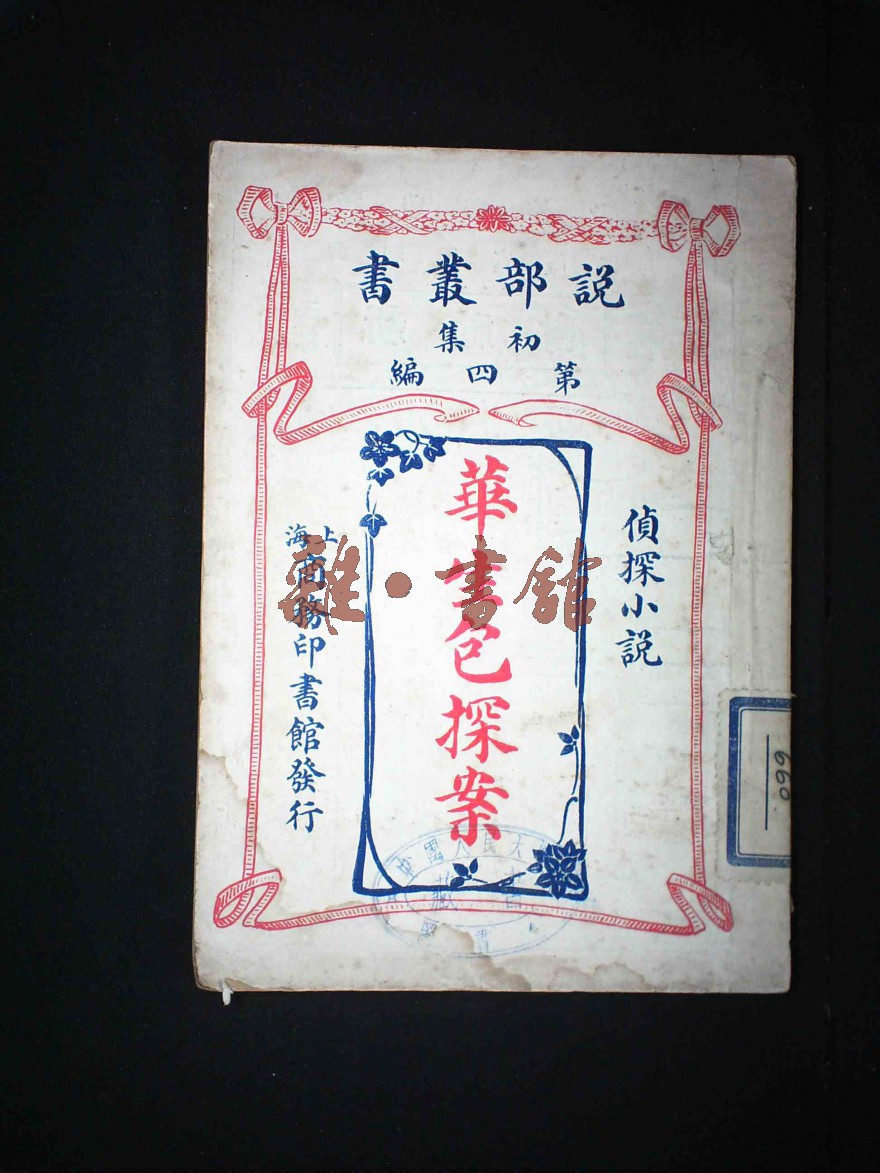 説部叢書
初集
第四編
偵探小説
華生包探案
上海商務印書館發行
雜·書舘
099